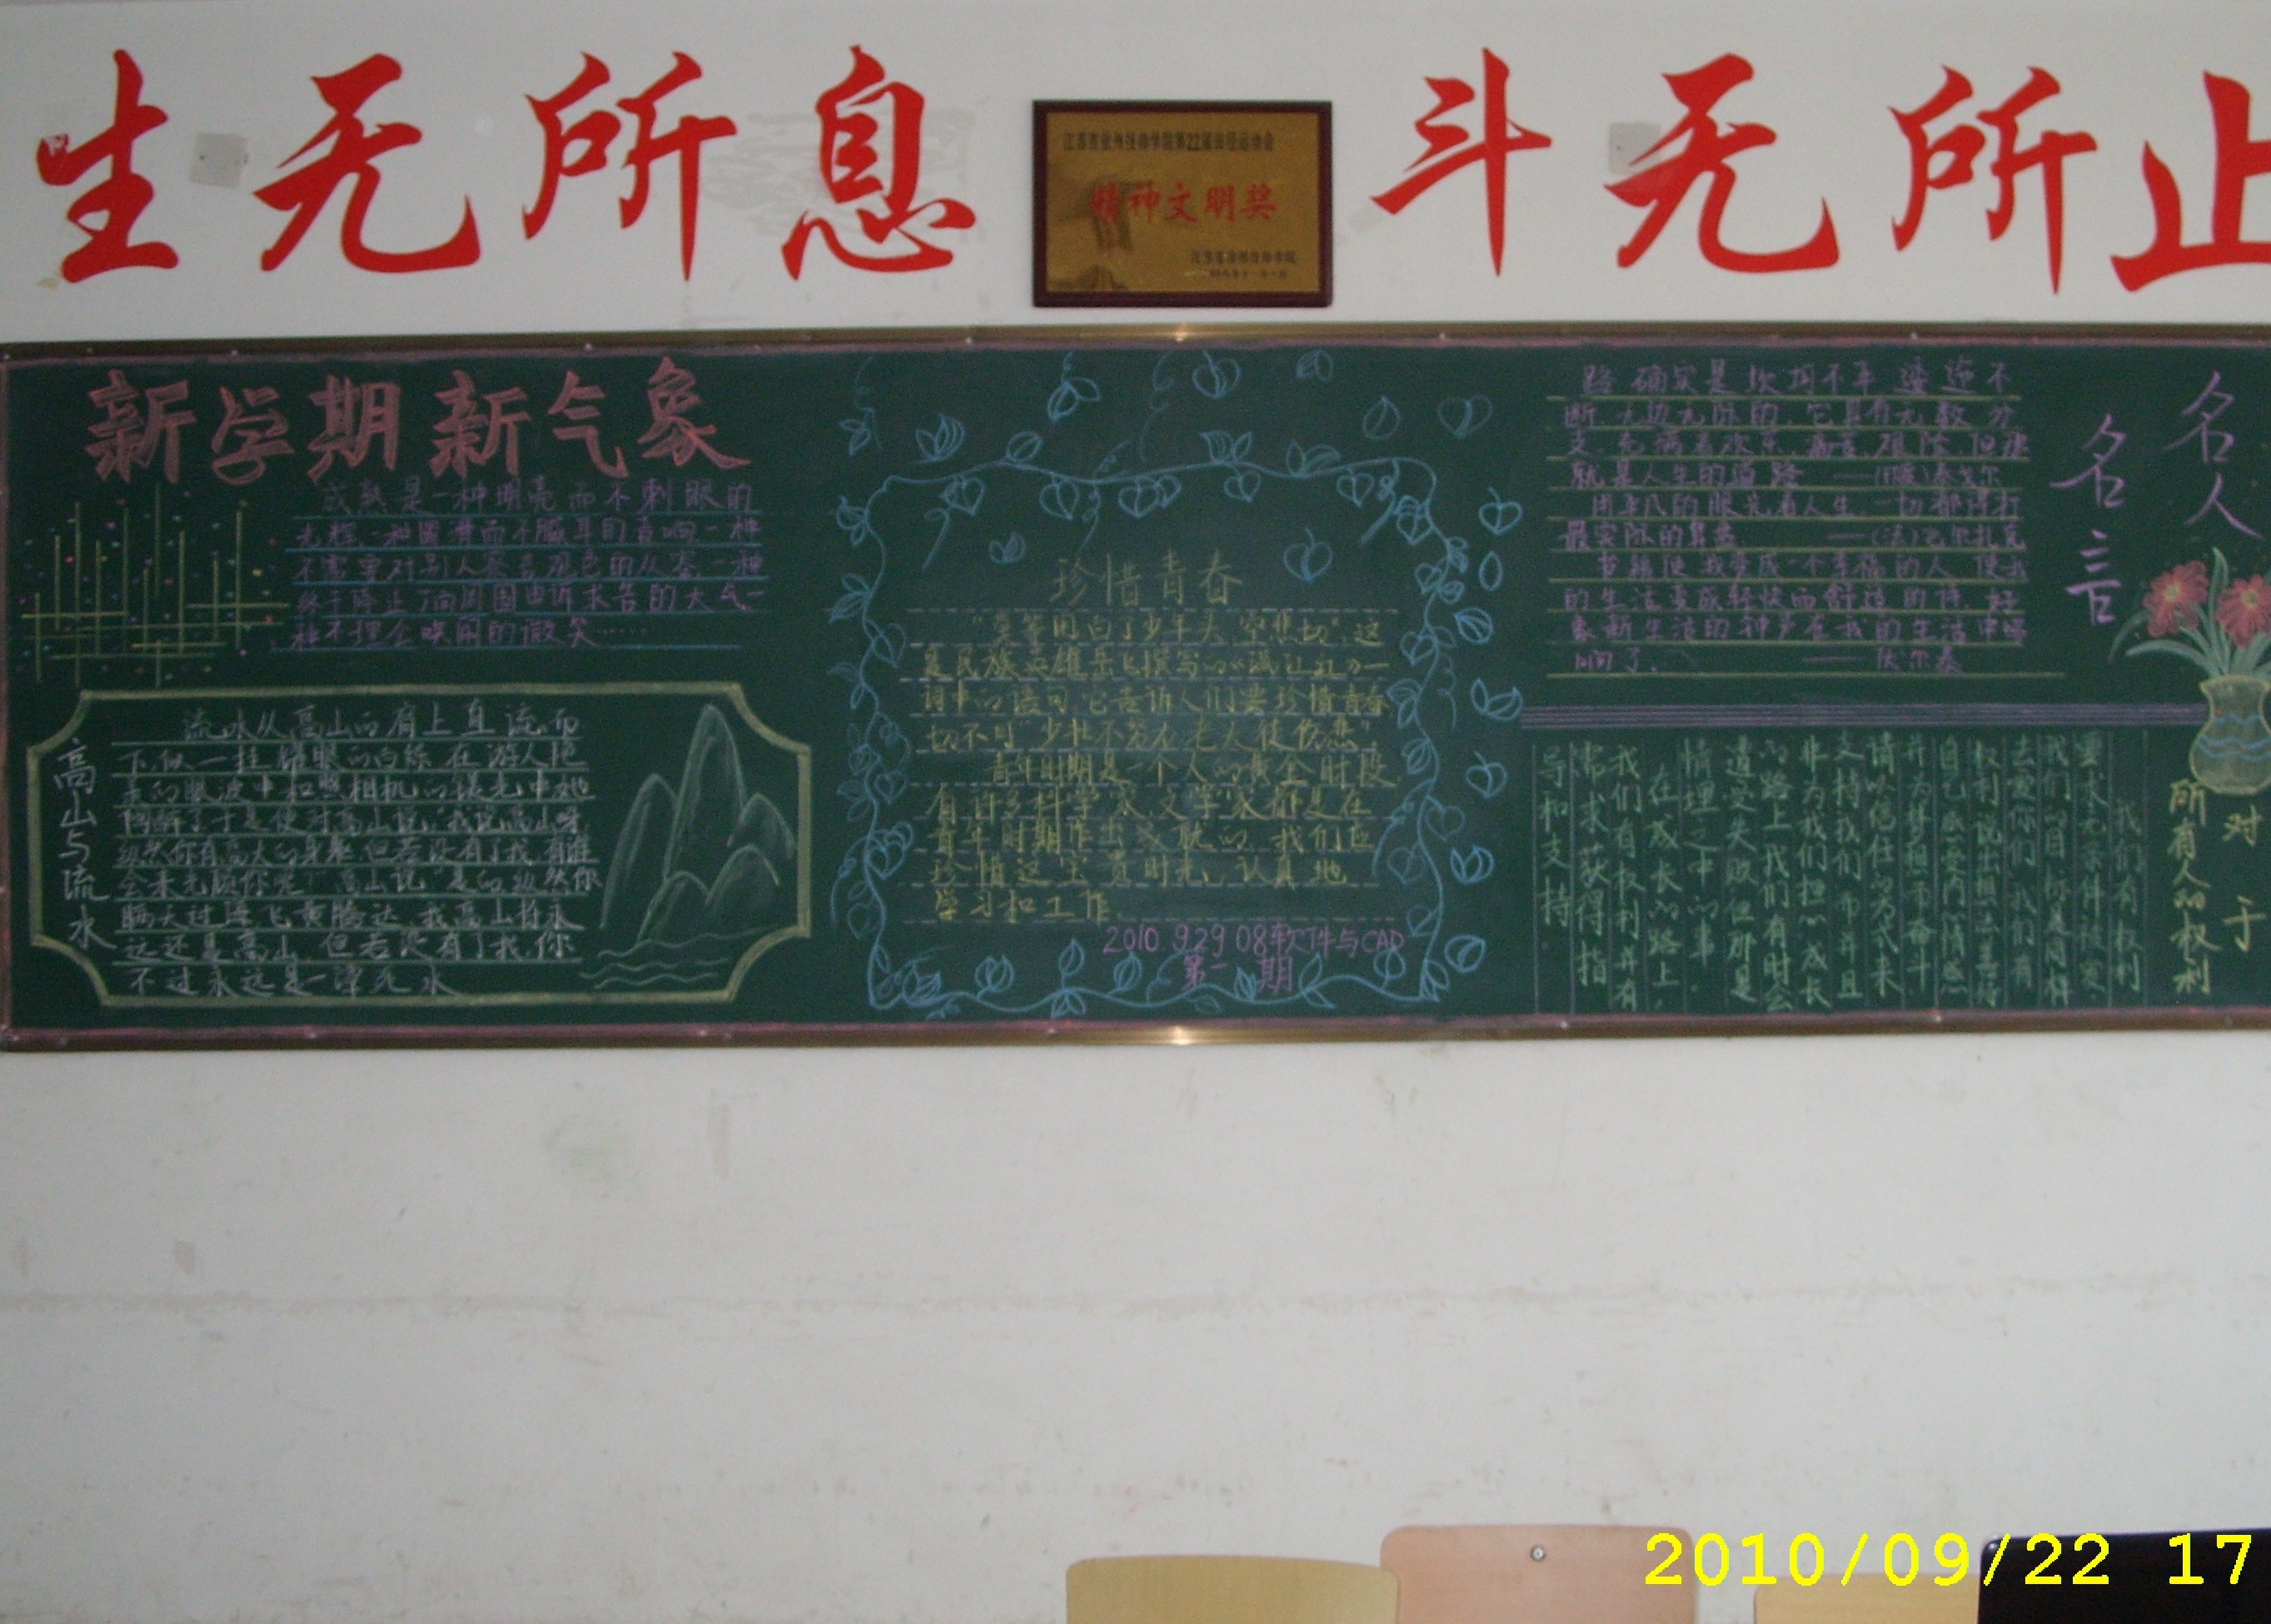 生无所息
斗无所止
江苏省徐州技师学院第22届田径运动会
精神文明奖
江苏省徐州技师学院
新学期新气象
成熟是一种明亮而不刺眼的
光辉一种圆骨而不腻耳的音响一种
不需要对别人察言观色的从容一种
终于停止了向周围申诉求告的大气一
种不理会哄闹的微笑……
高山与流水
流水从高山而有上直流而
下似一挂耀眼的白练在游人艳
羡的眼波中和照相机的绿光中她
陶醉了于是便对高山说:“我说高山呀
纵然你有高大的身躯但若没有了我有谁
会来光顾你呢”高山说“是的纵然你
瞒天过海飞黄腾达我高山将永
远还是高山但若没有了我你
不过永远是一潭死水
珍惜青春
“莫等闲白了少年头,空悲切”这
是民族英雄岳飞撰写的《满江红》一
词中的语句它告诉人们要珍惜青春
切不可“少壮不努力老大徒伤悲”
青年时期是一个人的黄金时段
有许多科学家文学家都是在
青年时期作出成就的,我们应
珍惜这宝贵时光,认真地
学习和工作.
2010 9.29 08软件与CAD
第一期
名人
名言
路确实是坎坷不平逶迤不
断无边无际的,它具有无数分
支,充满着欢乐,痛苦,艰险但这
就是人生的道路——(印度)泰戈尔
用平凡的眼光看人生一切都得打
最实际的算盘——(法)巴尔扎克
书籍使我变成一个幸福的人,使我
的生活变成轻快而舒适的诗,好
象新生活的钟声在我的生活中鸣
响了、——伏尔泰
对于
所有人的权利
我们有权利
要求无条件被爱
我们的目标是同样
去爱你们我们有
权利说出想法善待
自己感受内心情感
并为梦想而奋斗
请以信任的方式来
支持我们而并且
非为我们担心成长
的路上我们有时会
遭受失败但那是
情理之中的事
在成长的路上,
我们有权利并有
需求获得指
导和支持.
2010/09/22 17